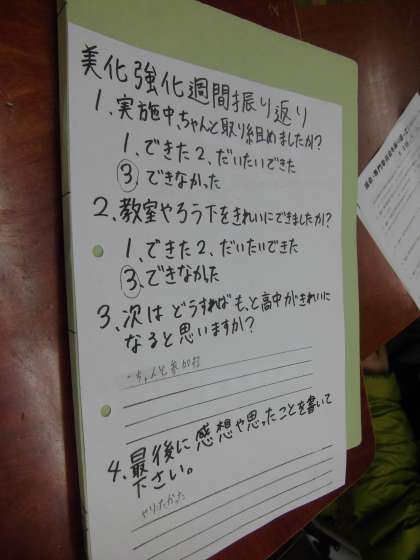 美化強化週間振り返り
1、実施中、ちゃんと取り組めましたか?
1、できた 2、だいたいできた
③、できなかった
2、教室やろう下をきれいにできましたか?
1、できた 2、だいたいできた
③、できなかった
3、次は どうすれば もっと高中がきれいに
なると思いますか?
ちゃんと参加
4、最後に感想や思ったことを書いて
下さい。
やりたかった